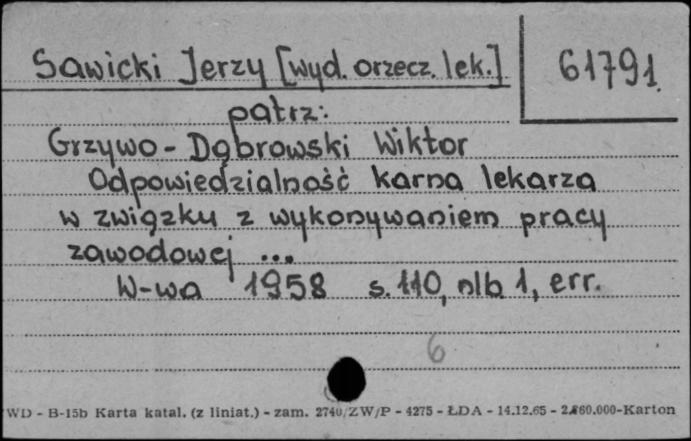 Sawicki Jerzy [wyd. orzecz. lek.]
61791
patrz:
Grzywo-Dąbrowski Wiktor
Odpowiedzialność karna lekarza
w związku z wykonywaniem pracy
zawodowej ...
W-wa 1958 s. 110, nlb 1, err.
6
WD - B-15b Karta katal. (z liniat.) - zam. 2740/ZW/P - 4275 - ŁDA - 14.12.65 - -Karton